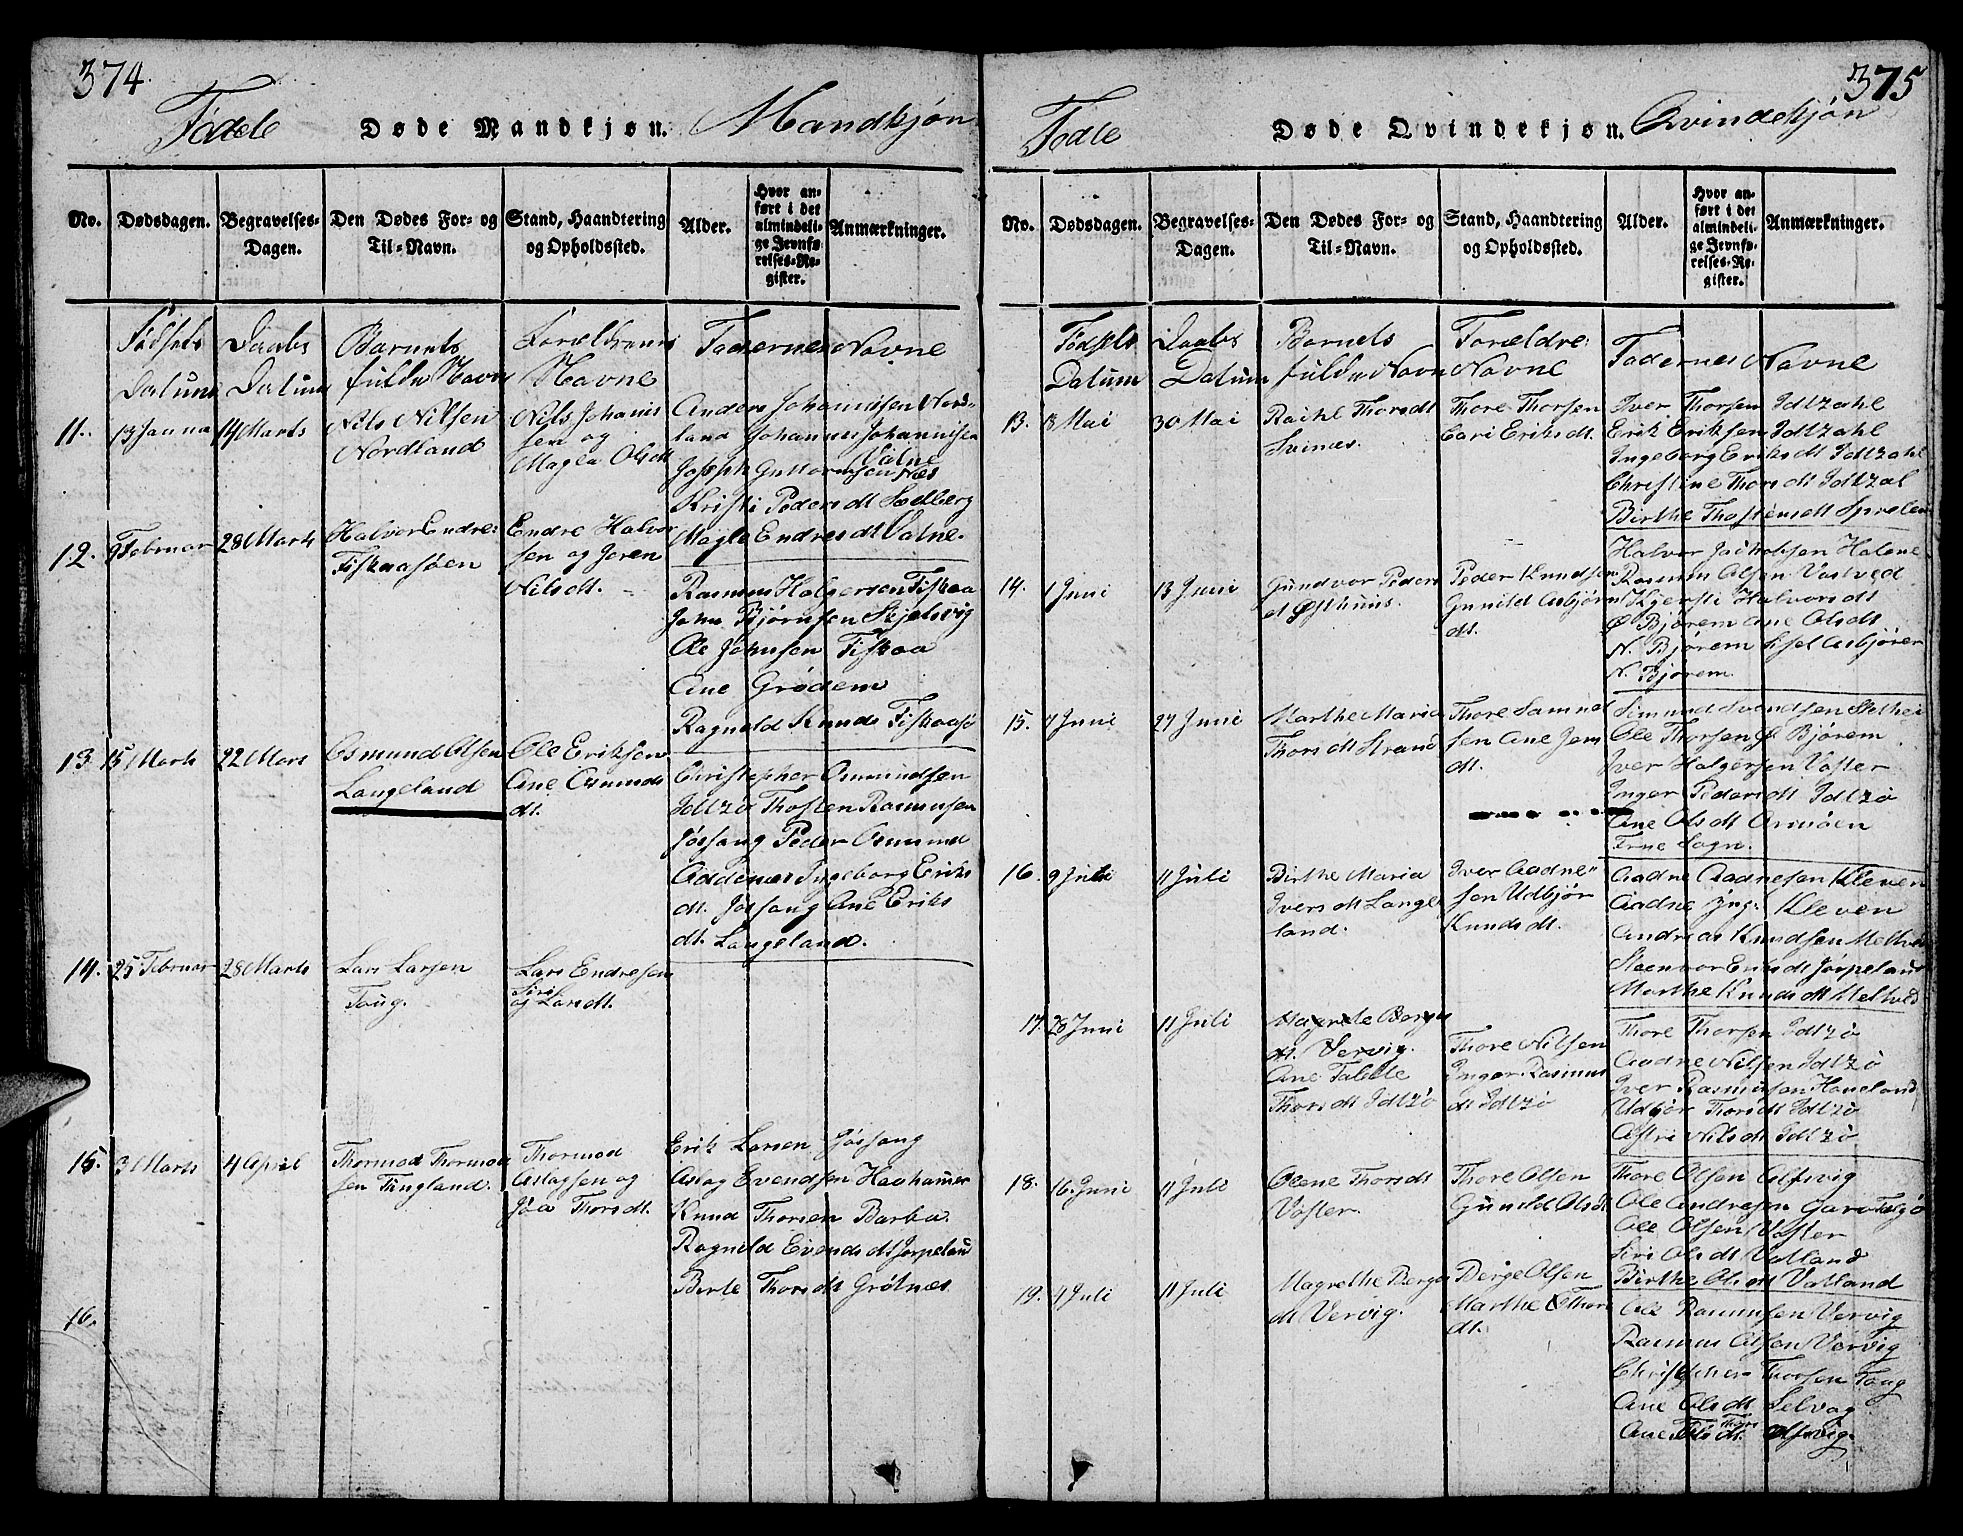 374.
Fødde Døde Mandkjøn. Mandkjøn
No. Dødsdagen. Begravelses-Dagen. Den Dødes For- og Til-Navn. Stand, Haandtering og Opholdssted. Alder. Hvor anført i det almindelige Jevnførelses-Register. Anmærkninger.
Fødsels Datum Daabs Datum Barnets fulde Navn Forældrenes Navne Faddernes Navne
11. 13 Janua 14 Marts Nils Nilsen Nordland
Nils Johannis
sen og
Magla Olsdt
Anders Johannisen Nord-
land Johannis Johannisen
Valne
Joseph Guttormsen Næs
Kristi Pedersdt Soelberg
Magle Endresdt Valne.
12. 9 Februar 28 Marts Halvor Endre:
Fiskaasøen
Endre Halvor
sen og Joren
Nilsdt.
Rasmus Holgersen Fiskaa
John Bjørnsen Skjelsvig
Ole Johnsen Fiskaa
Ane Grødem
Ragnild Knuds Fiskaasø
13 15 Marts 22 Mars Osmund Olsen
Langeland
Ole Eriksen
Ane Osmunds
dt.
Christopher Osmundsen
Idtzø Thosten Rasmusen
Jøssang Peder Osmund
Addenæs Ingeborg Eriks
dt. Jøssang Ane Eriks
dt. Langeland.
14. 25 Februar 28 Marts Lars Larsen
Toug.
Lars Endresen
Siri
og Larsdt.
15. 3 Marts 4 April Thormod Thormod
sen Tingland.
Thormod
Aslagsen og
Jøa Thorsdt.
Erik Larsen Jøssang
Aslag Evendsen Hauhamer
Knud Thorsen Barka.
Ragnild Evendsdt Jørpeland
Berte Thorsdt Grøtnæs
16.
375
Fødde Døde Qvindekjøn. Qvindekjøn
No. Dødsdagen. Begravelses-Dagen. Den Dødes For- og Til-Navn. Stand, Haandtering og Opholdssted. Alder. Hvor anført i det almindelige Jevnførelses-Register. Anmærkninger.
Fødsels Datum Daabs Datum Barnets fulde Navn Forældre: Navne Faddernes Navne
13. 8 Mai 30 Mai Rachl Thorsdt
Svinæs.
Thore Thorsen
Cari Eriksdt.
Iver Thorsen Idtzahl
Erik Eriksen Idtzahl
Ingeborg Eriksdt Idtzahl
Christine Thorsdt Idtzal
Birthe Thostensdt
14. 1 Juni 13 Juni Gundvor Peders
dt Østhuus.
Peder Knudsen
Gunild Asbjørns
dt.
Halvor Jacobsen
Rasmus Olsen Vostved
Kjersti Halvorsdt
Ø Bjørem Ane Olsdt
N. Bjørem Sisel Asbjørns
N. Bjørem.
15. 7 Juni 27 Juni Marthe Maria
Thorsdt Strand
Thore Samue
sen Ane Jens
dt.
Simund Svendsen
Ole Thorsen Ø Bjørem
Iver Holgersen Voster
Inger Pedersdt Idtzø
Ane Olsdt
Sogn.
16. 9 Juli 11 Juli Birthe Maria
Iversdt Lange
land.
Iver Aadne
sen Udbjør
Knudsdt.
Aadne Aadnesen Kleven
Aadne Kleven
Andreas Knudsen
Steenvor Eriksdt Jørpeland
Marthe Knudsdt Meltved
17. 28 Juni 11 Juli Magrete Berges
dt. Vervig.
Ane Talette
Thorsdt Idtzø
Thore Nilsen
Inger Rasmus
dt Idtzø
Thore Thorsen Idtzø
Aadne Nilsen Idtzø
Iver Rasmusen
Udbør Thorsdt Idtzø
Astri Nilsdt Idtzø
18. 16 Juni 11 Juli Olene Thorsdt
Voster.
Thore Olsen
Gunild Olsd
Thore Olsen Alsvig
Ole Andresen
Ole Olsen Voster
Siri Olsdt Vatland
Birthe Olsdt Vatland
19. 4 Juli 11 Juli Magrethe Berges
dt Vervig.
Berge Olsen
Marthe Thors
dt.
Ole Rasmusen Vervig
Rasmus Olsen Vervig
Christopher Thorsen Toug
Ane Olsdt Selvag
Thors
Ane dt. Alsvig.